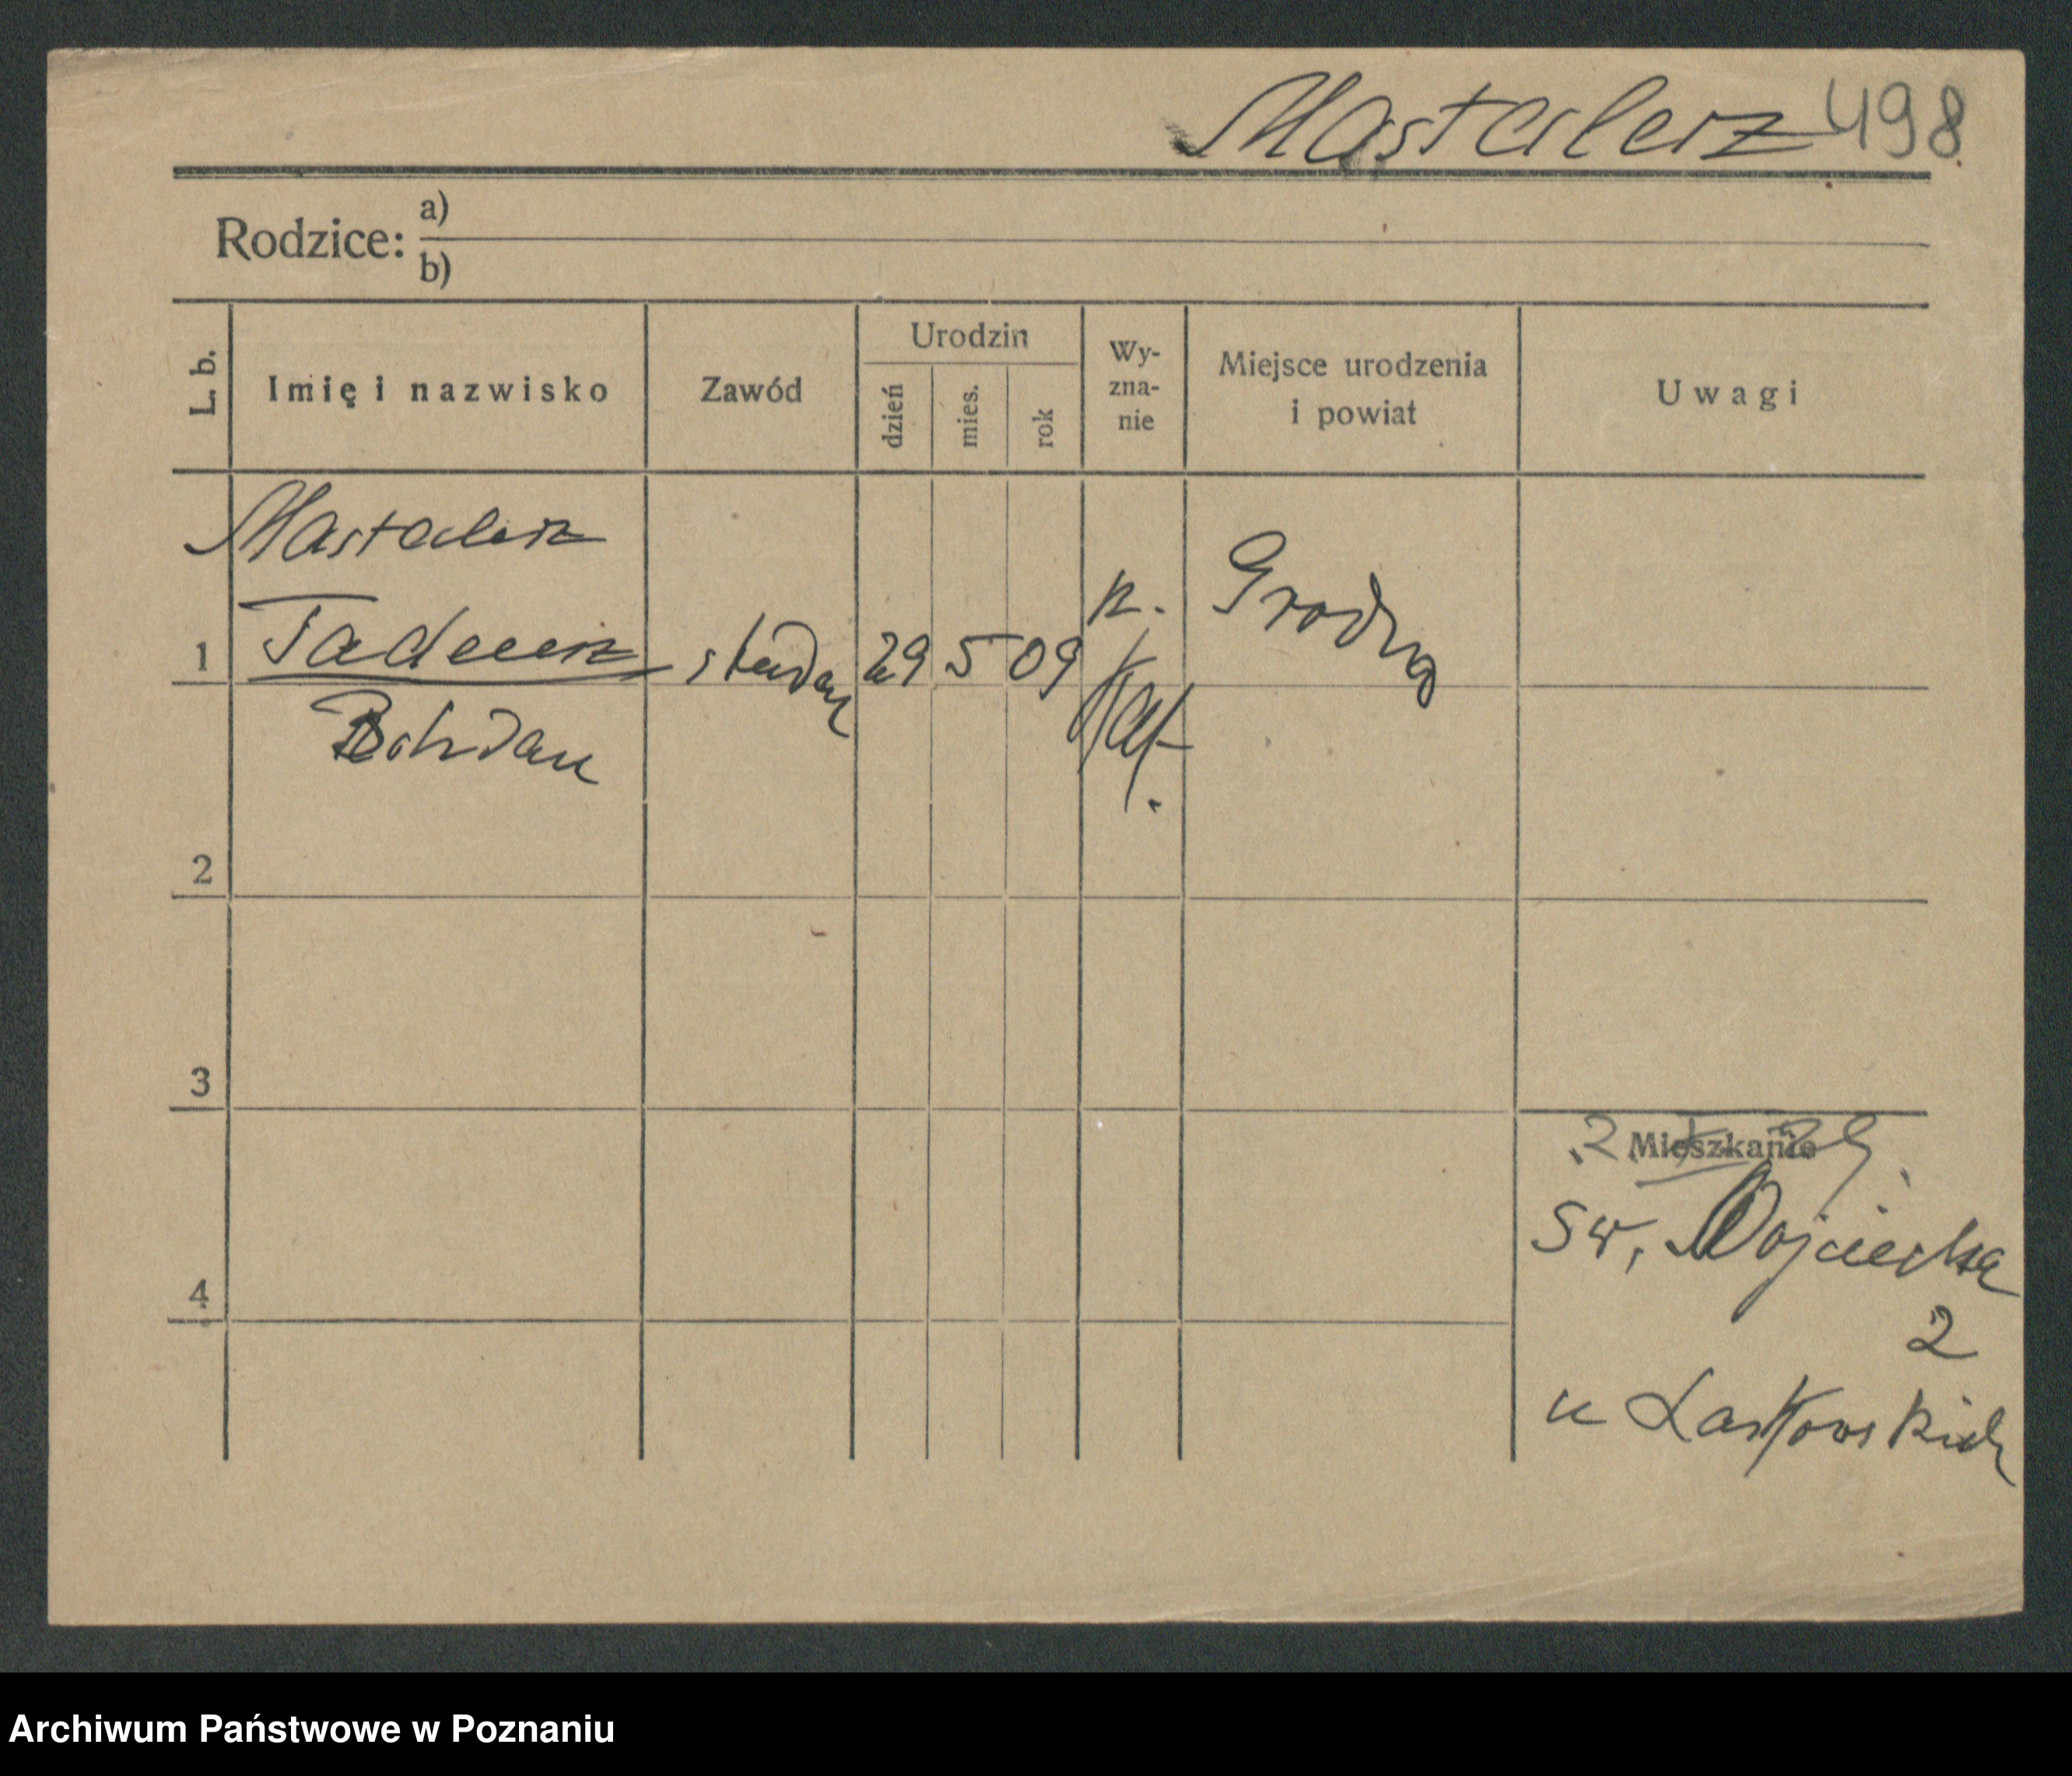 Mastalerz 498
Rodzice: a)
b)
L. b. Imię i nazwisko Zawód Urodzin dzień mies. rok Wy-zna-nie Miejsce urodzenia i powiat Uwagi
Mastalerz
1 Tadeusz student 29 5 09 r. kat. Grodno
Bohdan
2
3
4
Mieszkanie
Św. Wojciecha
2
u Laskowskich
Archiwum Państwowe w Poznaniu